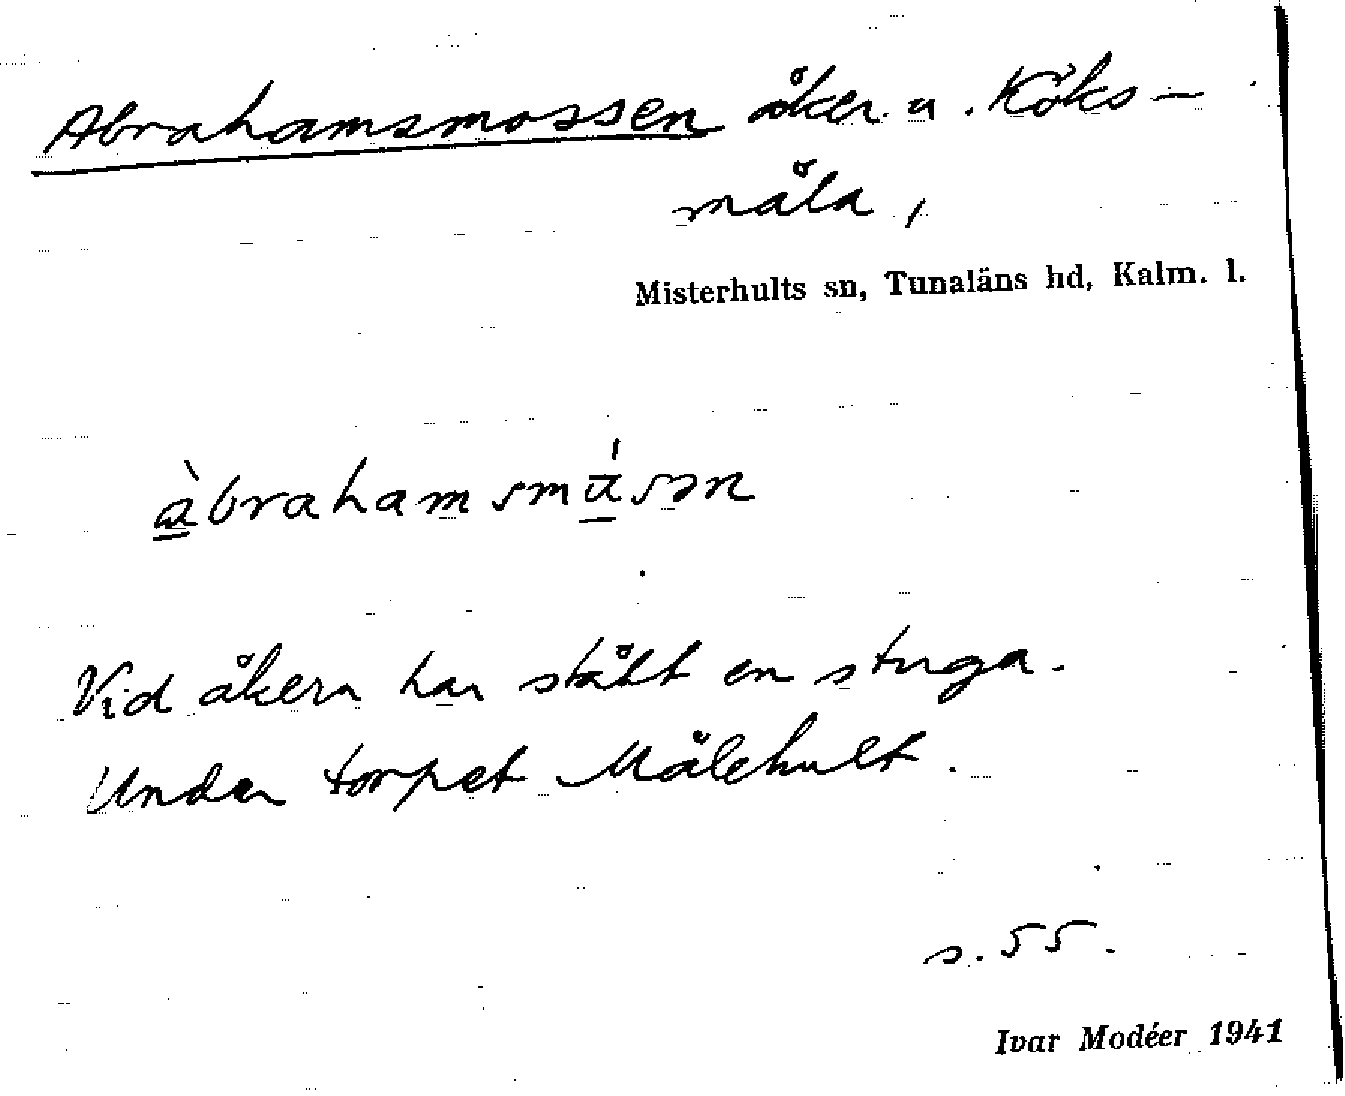 Abrahamsmossen åker u. Köks-
måla,
Misterhults sn, Tunaläns hd, Kalm. l.
Vid åkern har stått en stuga.
Under torpet Mälehult.
s. 55.
Ivar Modéer 1941